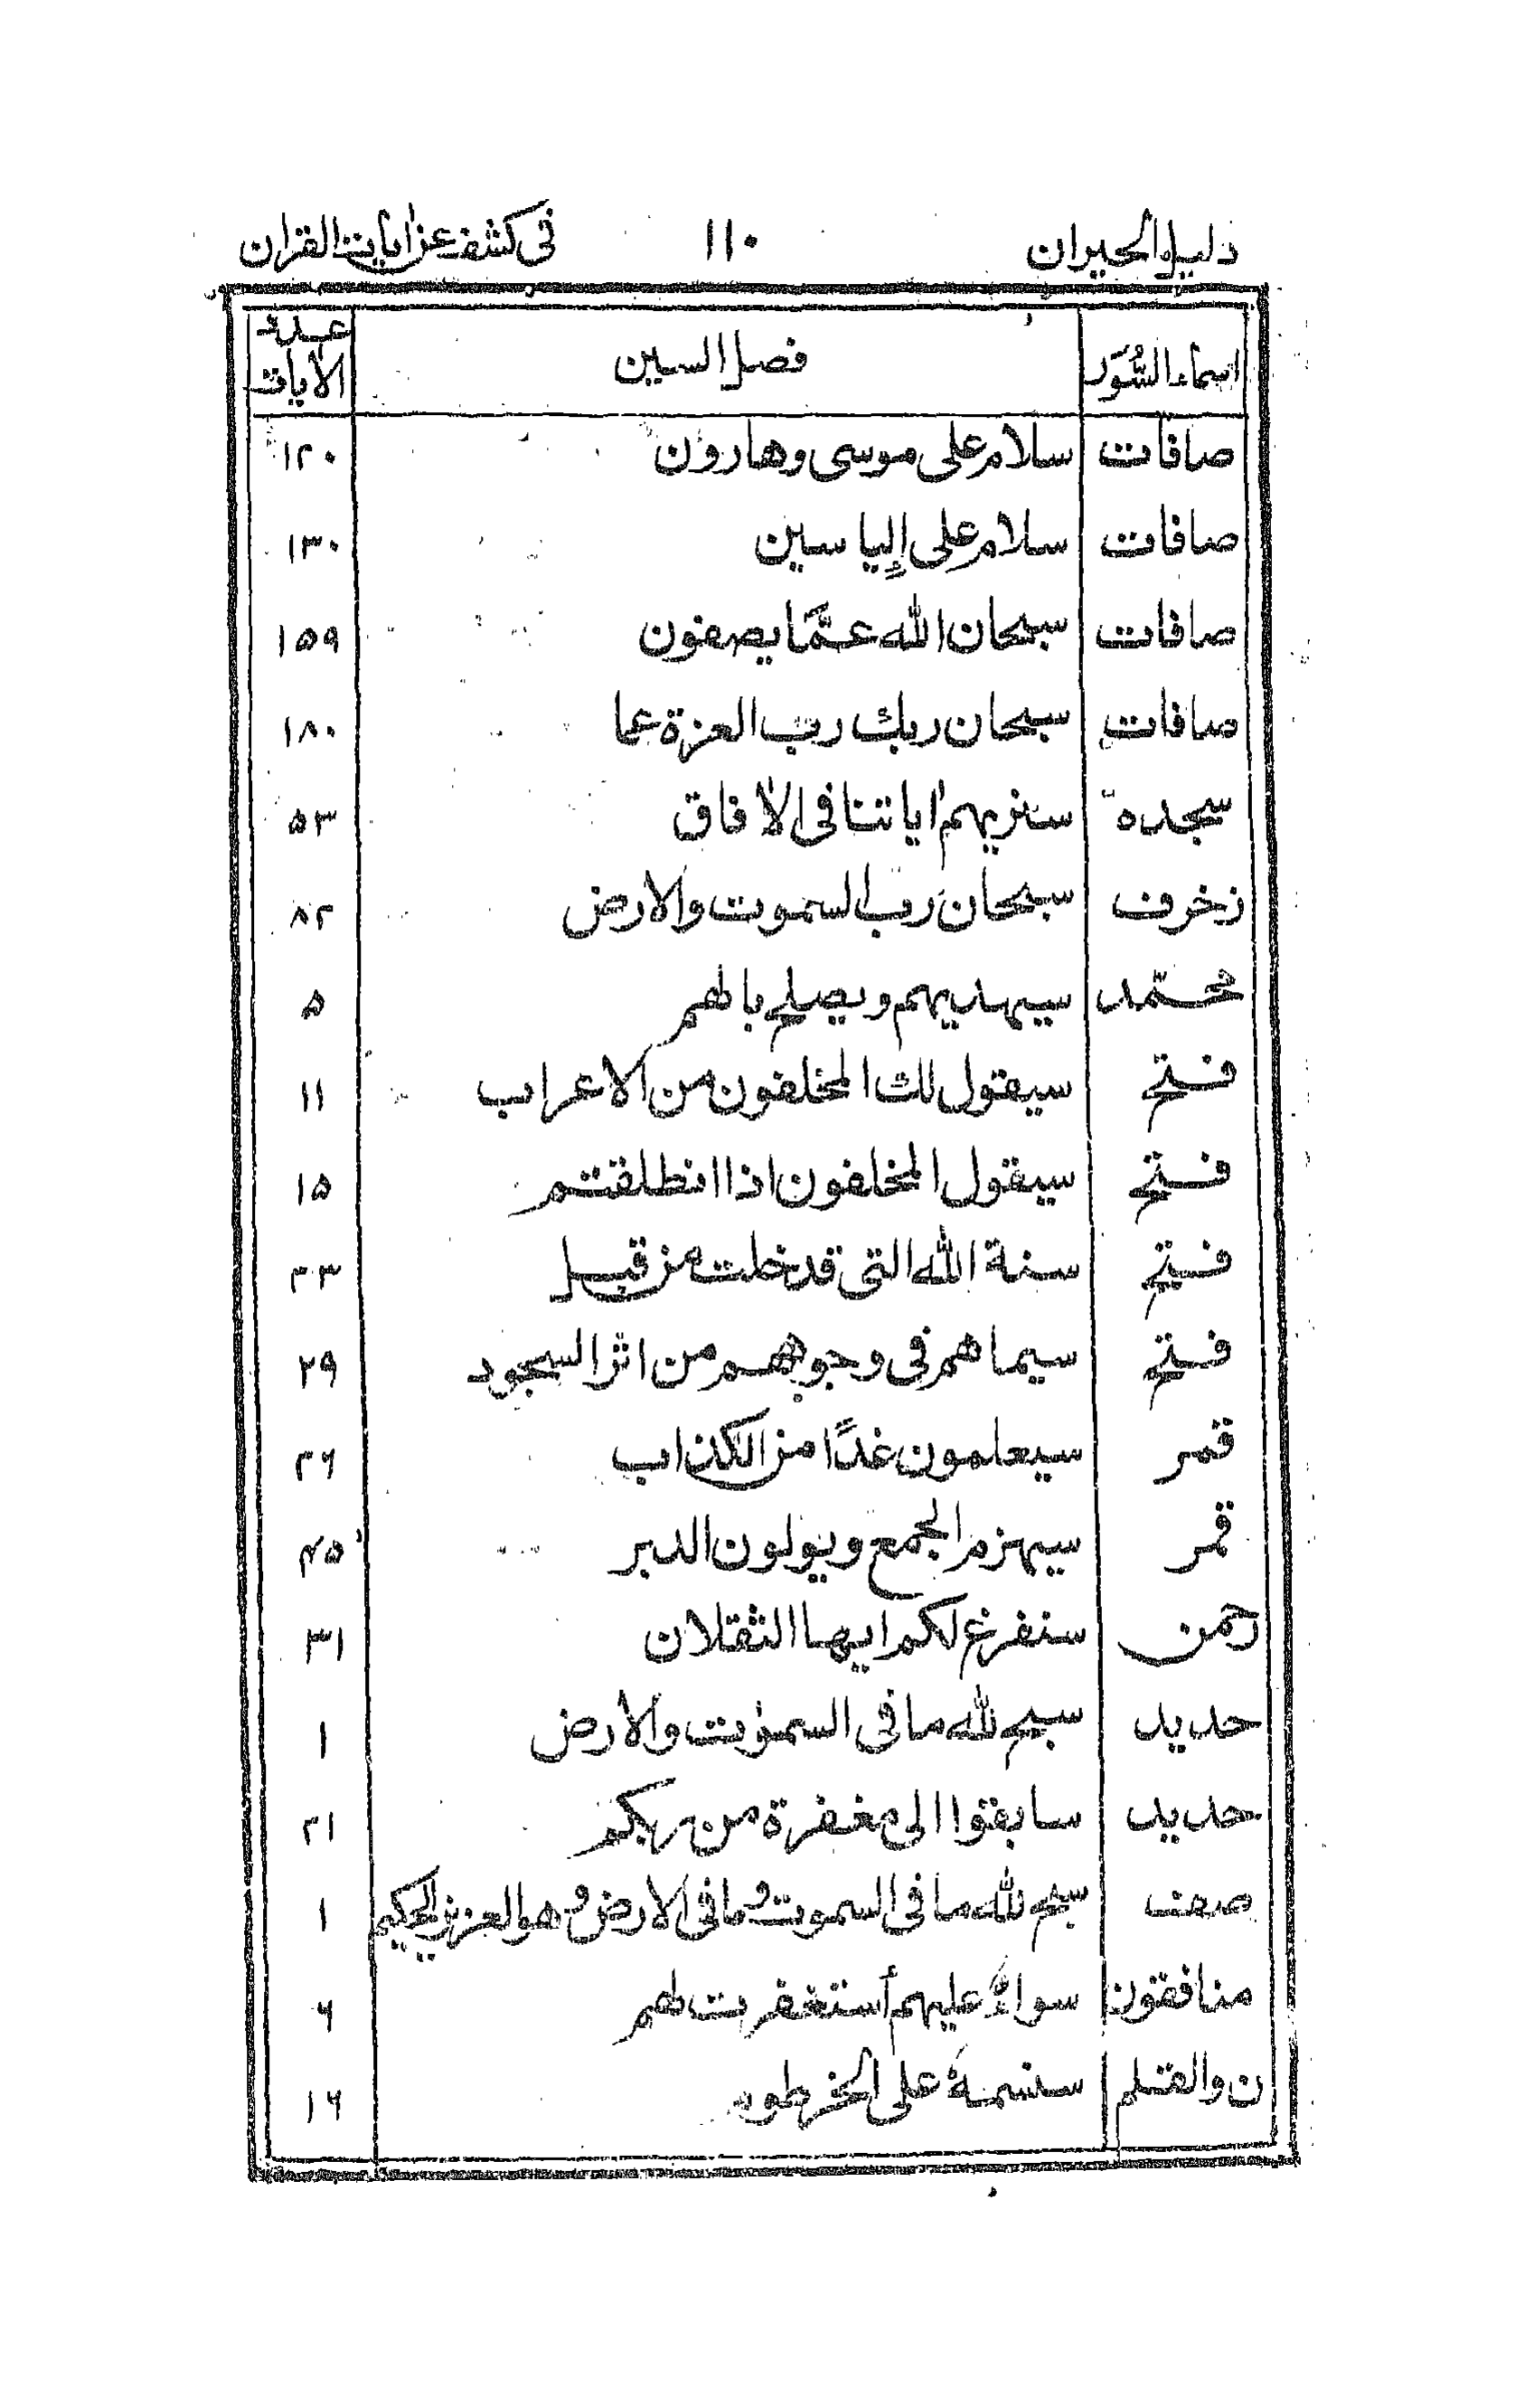 دليل الحيران ١١٠ فى كشف عن اٰيات القران
اسماء السُّوَر فصل السين عدد الاٰيات
صافات سلام على موسى وهارون ١٢٠
صافات سلام على إِلياسين ١٣٠
صافات سبحان الله عمَّا يصفون ١۵٩
صافات سبحان ربك رب العزة عما ١٨٠
سجده سنريهم اٰياتنا فى الاٰفاق ۵٣
زخرف سبحان رب السموت والارض ٨٢
محمّد سيهديهم ويصلح بالهم ۵
فتح سيقول لك المخلفون من الاعراب ١١
فتح سيقول المخلفون اذا انطلقتم ١۵
فتح سنة الله التى قد خلت من قبل ٢٣
فتح سيماهم فى وجوههم من اثر السجود ٢٩
قمر سيعلمون غدًا من الكذاب ٢۶
قمر سيهزم الجمع ويولون الدبر ۴۵
رحمن سنفرغ لكم ايها الثقلان ٣١
حديد سبح لله ما فى السمٰوت والارض ١
حديد سابقوا الى مغفرة من ربكم ٢١
صف سبح لله ما فى السموت وما فى الارض وهو العزيز الحكيم ١
منافقون سواءٌ عليهم أستغفرت لهم ۶
ن والقلم سنسمهٗ على الخرطوم ١۶